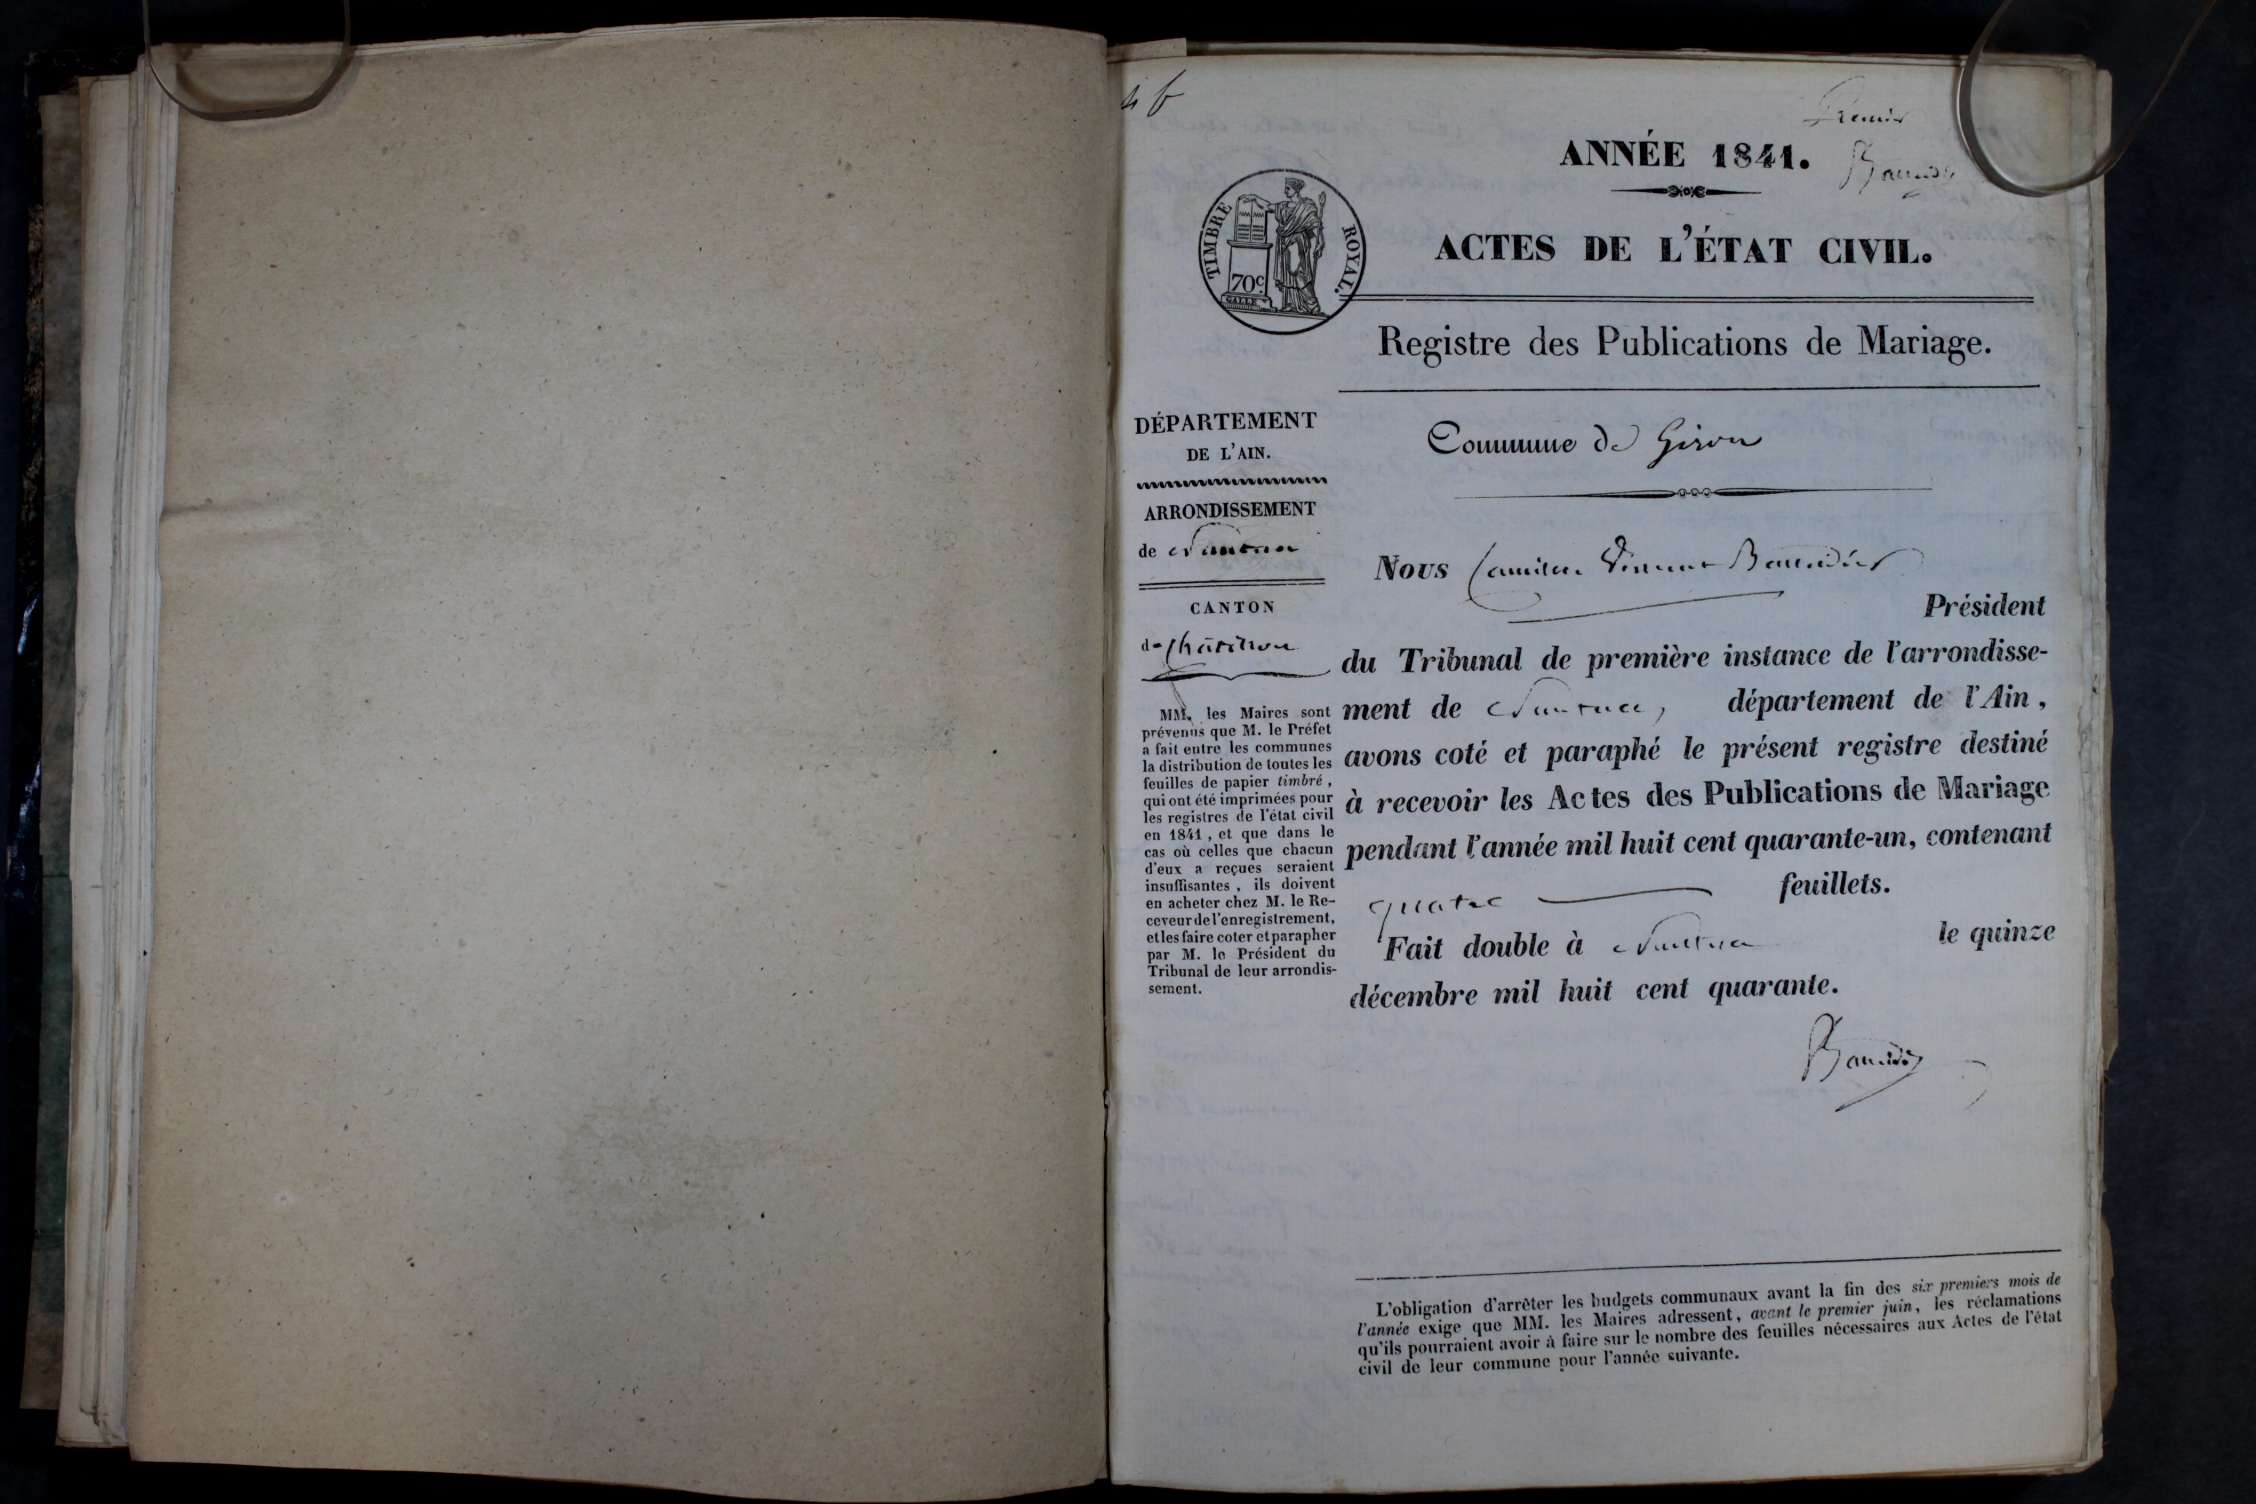 Premier
ANNÉE 1841.
ACTES DE L'ÉTAT CIVIL.
TIMBRE ROYAL.
70c.
Registre des Publications de Mariage.
DÉPARTEMENT
DE L'AIN.
ARRONDISSEMENT
de Nantua
CANTON
de Châtillon
MM. les Maires sont
prévenus que M. le Préfet
a fait entre les communes
la distribution de toutes les
feuilles de papier timbré,
qui ont été imprimées pour
les registres de l'état civil
en 1841, et que dans le
cas où celles que chacun
d'eux a reçues seraient
insuffisantes, ils doivent
en acheter chez M. le Re-
ceveur de l'enregistrement,
et les faire coter et parapher
par M. le Président du
Tribunal de leur arrondis-
sement.
Commune de Giron
Nous Vincent
Président
du Tribunal de première instance de l'arrondisse-
ment de Nantua, département de l'Ain,
avons coté et paraphé le présent registre destiné
à recevoir les Actes des Publications de Mariage
pendant l'année mil huit cent quarante-un, contenant
quatre feuillets.
Fait double à Nantua le quinze
décembre mil huit cent quarante.
L'obligation d'arrêter les budgets communaux avant la fin des six premiers mois de
l'année exige que MM. les Maires adressent, avant le premier juin, les réclamations
qu'ils pourraient avoir à faire sur le nombre des feuilles nécessaires aux Actes de l'état
civil de leur commune pour l'année suivante.